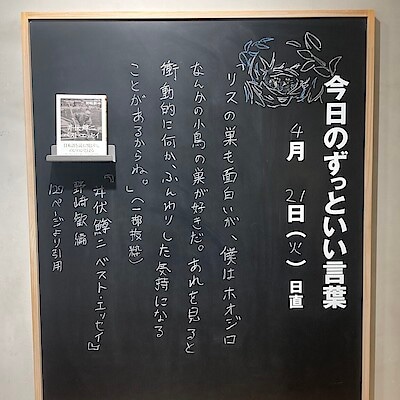 今日のずっといい言葉
4月21日(火)日直
「リスの巣も面白いが、僕はホオジロ
なんかの小鳥の巣が好きだ。あれを見ると
衝動的に何か、ふんわりした気持になる
ことがあるからね。」(一部抜粋)
『井伏鱒二 ベスト・エッセイ』
野崎歓 編
120ページより引用
井伏鱒二
ベスト・エッセイ